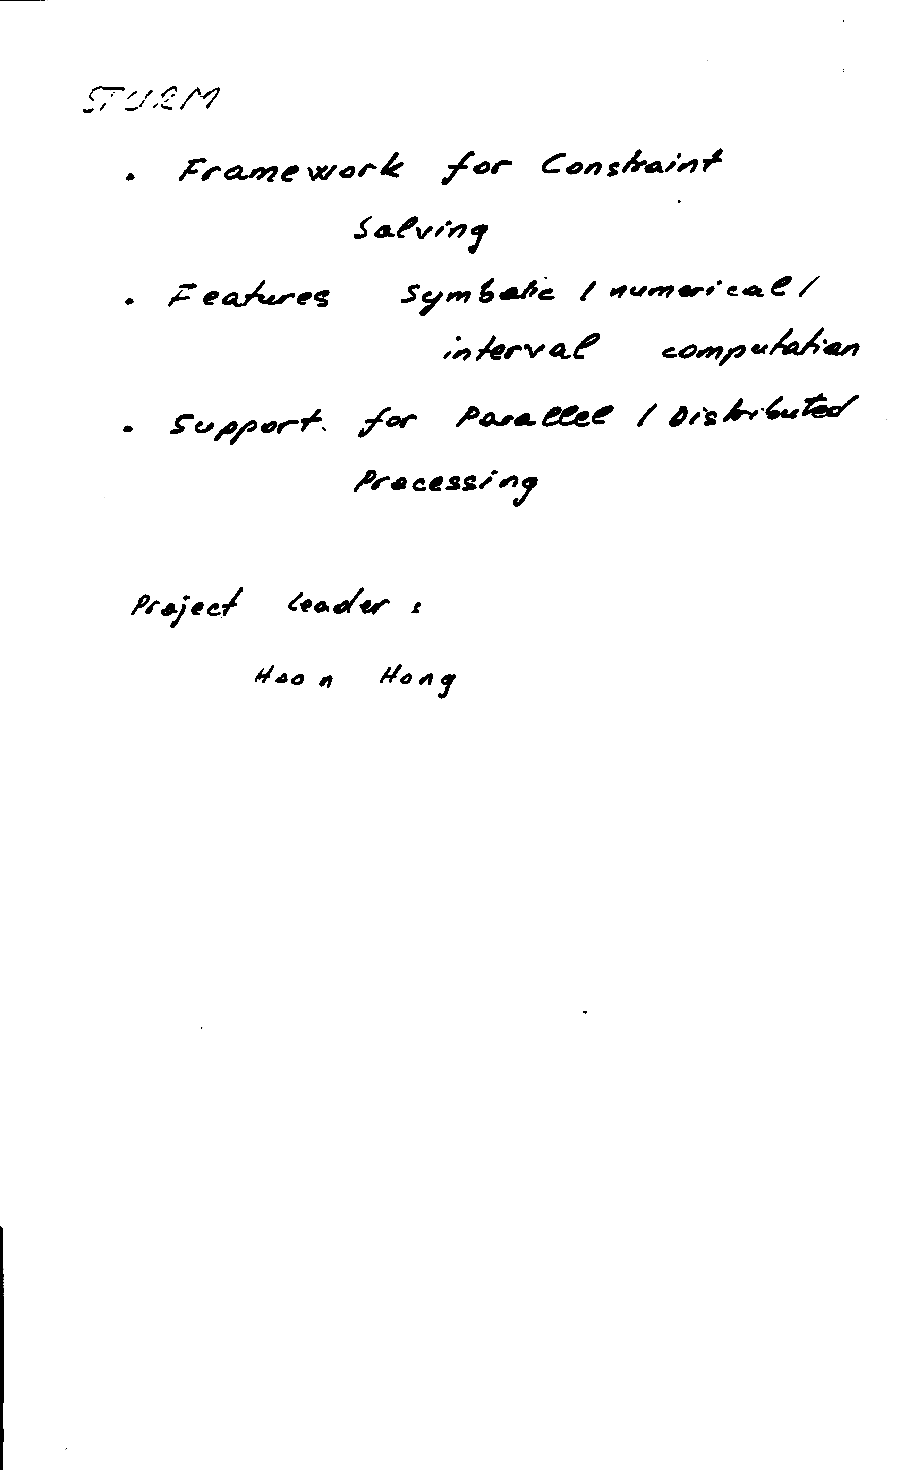 STURM
. Framework for Constraint
Solving
. Features Symbolic / numerical /
interval computation
. Support for Parallel / Distributed
Processing
Project Leader :
Hoon Hong